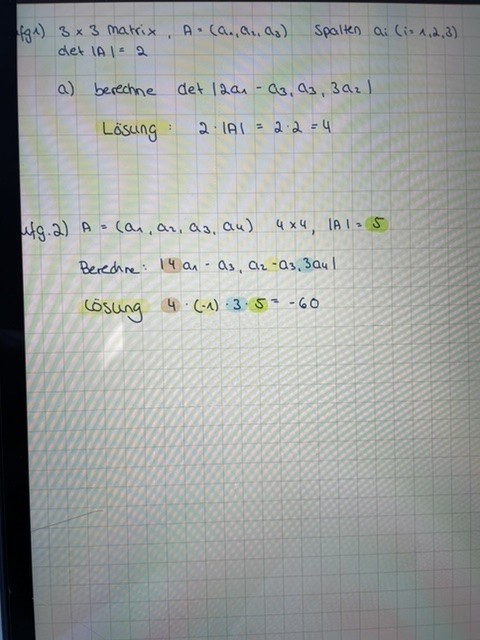 ufg1) 3 x 3 matrix, A = (a₁, a₂, a₃) Spalten aᵢ (i = 1,2,3)
det |A| = 2
a) berechne det |2a₁ - a₃, a₃, 3a₂|
Lösung: 2 · |A| = 2 · 2 = 4
ufg.2) A = (a₁, a₂, a₃, a₄) 4x4, |A| = 5
Berechne: |4a₁ - a₃, a₂ - a₃, 3a₄|
Lösung 4 · (-1) · 3 · 5 = -60